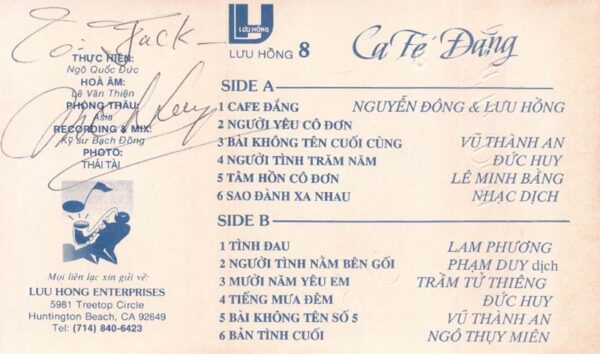 To: Jack -
THỰC HIỆN:
Ngô Quốc Đức
HOÀ ÂM:
Lê Văn Thiện
PHÒNG THÂU:
Asia
RECORDING & MIX:
Kỹ sư Bạch Đông
PHOTO:
THÁI TÀI
Mọi liên lạc xin gửi về:
LUU HONG ENTERPRISES
5981 Treetop Circle
Huntington Beach, CA 92649
Tel: (714) 840-6423
LƯU HỒNG
LƯU HỒNG 8
Ca Fé Đắng
SIDE A
1 CAFE ĐẮNG NGUYỄN ĐÔNG & LƯU HỒNG
2 NGƯỜI YÊU CÔ ĐƠN
3 BÀI KHÔNG TÊN CUỐI CÙNG VŨ THÀNH AN
4 NGƯỜI TÌNH TRĂM NĂM ĐỨC HUY
5 TÂM HỒN CÔ ĐƠN LÊ MINH BẰNG
6 SAO ĐÀNH XA NHAU NHẠC DỊCH
SIDE B
1 TÌNH ĐAU LAM PHƯƠNG
2 NGƯỜI TÌNH NẰM BÊN GỐI PHẠM DUY dịch
3 MƯỜI NĂM YÊU EM TRẦM TỬ THIÊNG
4 TIẾNG MƯA ĐÊM ĐỨC HUY
5 BÀI KHÔNG TÊN SỐ 5 VŨ THÀNH AN
6 BẢN TÌNH CUỐI NGÔ THỤY MIÊN